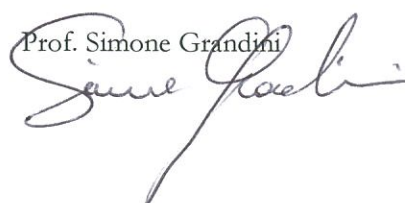 Prof. Simone Grandini
Simone Grandini